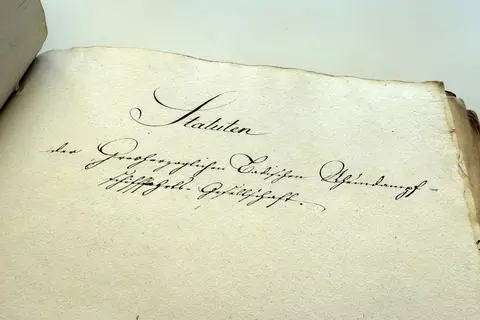 Statuten
der Großherzoglichen Badischen Rheindampf-
schifffahrts Gesellschaft.